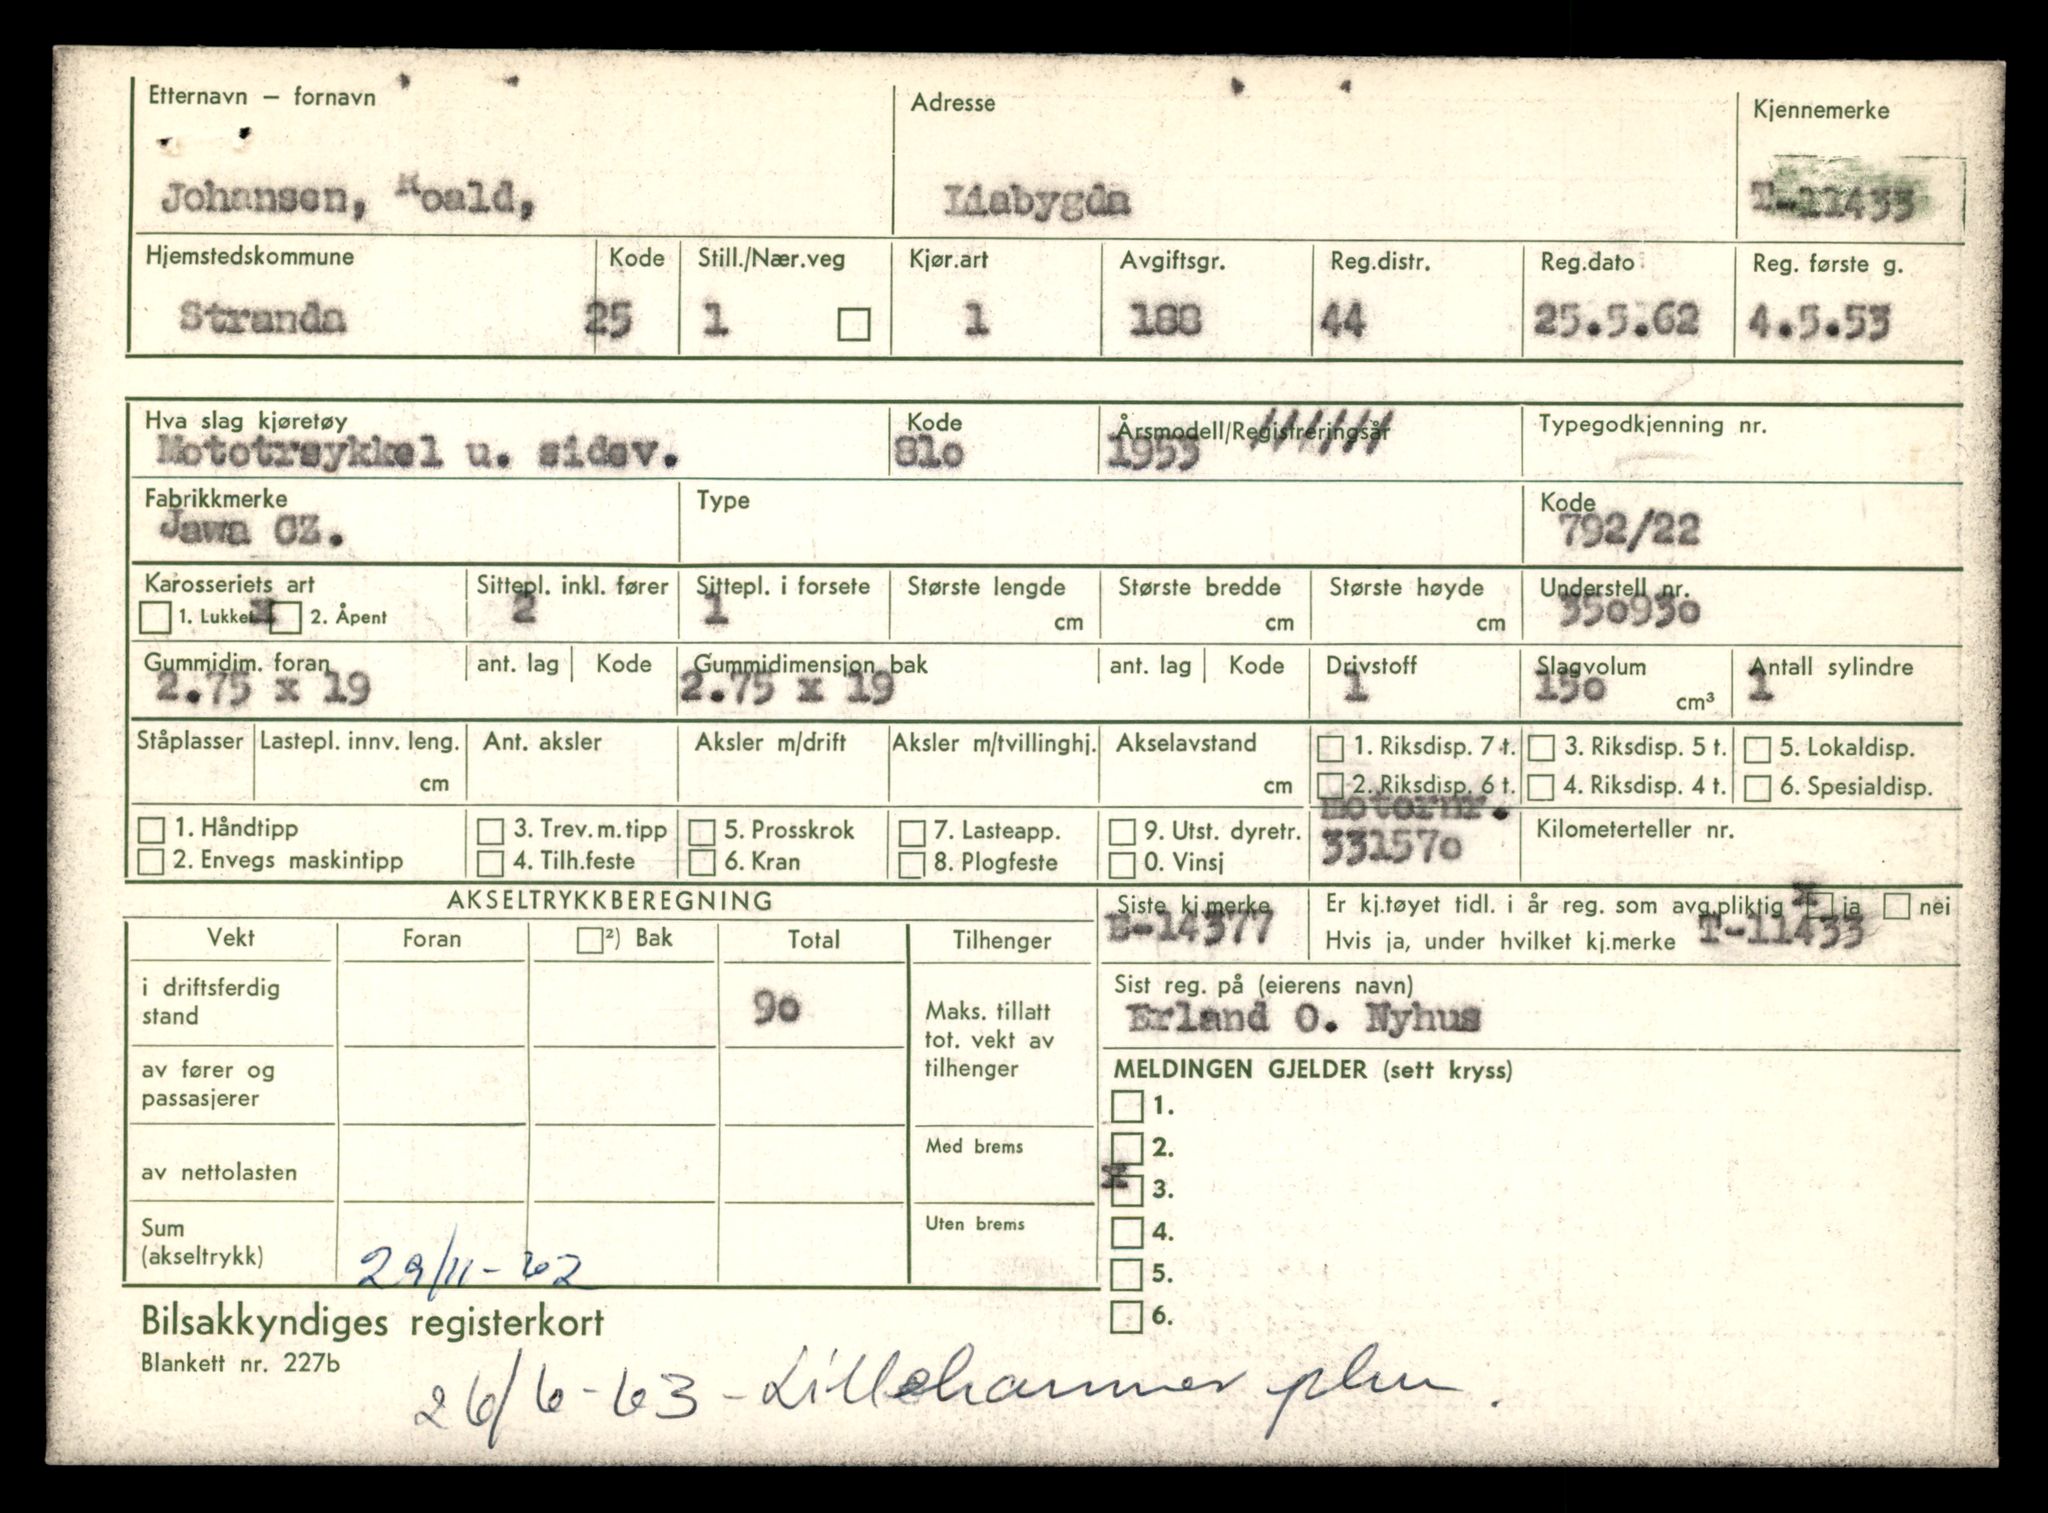 Etternavn – fornavn Adresse Kjennemerke
Johansen, Roald, Liabygda T-11433
Hjemstedskommune Kode Still./Nær.veg Kjør.art Avgiftsgr. Reg.distr. Reg.dato Reg. første g.
Stranda 25 1 1 188 44 25.5.62 4.5.53
Hva slag kjøretøy Kode Årsmodell/Registreringsår Typegodkjenning nr.
Mototrsykkel u. sidev. 81o 1953 //////
Fabrikkmerke Type Kode
Jawa CZ. 792/22
Karosseriets art Sittepl. inkl. fører Sittepl. i forsete Største lengde Største bredde Største høyde Understell nr.
1. Lukket x 2. Åpent 2 1 cm cm cm 35o93o
Gummidim. foran ant. lag Kode Gummidimensjon bak ant. lag Kode Drivstoff Slagvolum Antall sylindre
2.75 x 19 2.75 x 19 1 15o cm³ 1
Ståplasser Lastepl. innv. leng. Ant. aksler Aksler m/drift Aksler m/tvillinghj. Akselavstand 1. Riksdisp. 7 t. 3. Riksdisp. 5 t. 5. Lokaldisp.
cm cm 2. Riksdisp. 6 t. 4. Riksdisp. 4 t. 6. Spesialdisp.
Motornr.
1. Håndtipp 3. Trev. m. tipp 5. Prosskrok 7. Lasteapp. 9. Utst. dyretr. Kilometerteller nr.
2. Envegs maskintipp 4. Tilh.feste 6. Kran 8. Plogfeste 0. Vinsj 33157o
AKSELTRYKKBEREGNING Siste kj.merke Er kj.tøyet tidl. i år reg. som avg.pliktig x ja nei
Vekt Foran ²) Bak Total Tilhenger -14377 Hvis ja, under hvilket kj.merke T-11433
i driftsferdig stand 9o Maks. tillatt tot. vekt av tilhenger Sist reg. på (eierens navn)
Erland O. Nyhus
av fører og passasjerer MELDINGEN GJELDER (sett kryss)
1.
av nettolasten Med brems 2.
x 3.
Sum (akseltrykk) Uten brems 4.
29/11-62 5.
Bilsakkyndiges registerkort 6.
Blankett nr. 227b
26/6-63 - Lillehammer